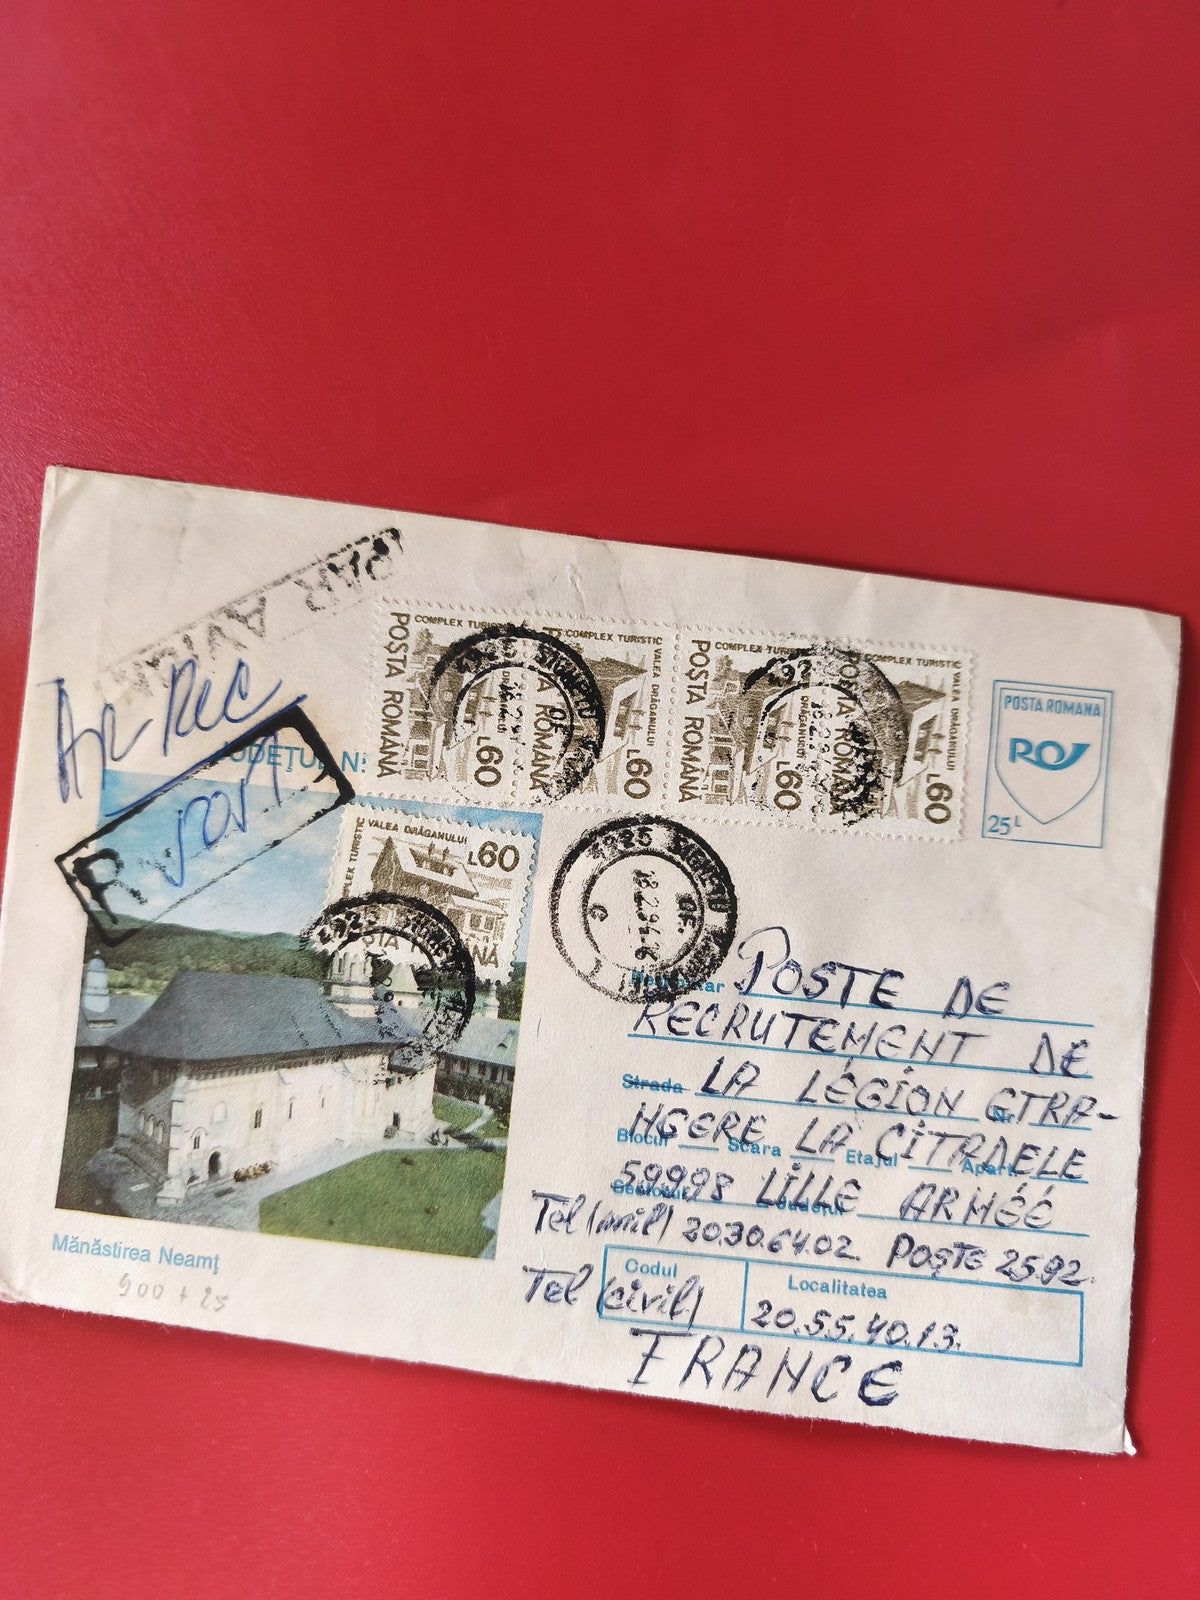 PAR AVION
Av-Rec
R
JUDEȚUL N
POȘTA ROMÂNA COMPLEX TURISTIC L60
COMPLEX TURISTIC VALEA DRĂGANULUI POȘTA ROMÂNA L60
POȘTA ROMÂNA COMPLEX TURISTIC DRĂGANULUI L60
COMPLEX TURISTIC VALEA DRĂGANULUI POȘTA ROMÂNA L60
COMPLEX TURISTIC VALEA DRĂGANULUI L60
4925 SIGHETU
18.2.94.16
POSTA ROMANA
RO
25L
Destinatar POSTE DE
RECRUTEMENT DE
Strada LA LÉGION ETRA- Nr.
NGERE LA CITADELE
Blocul Scara Etajul Apart.
59998 LILLE ARMÉÉ
Sectorul Județul
Tel (mil) 20.30.64.02 POȘTE 2592.
Codul Localitatea
Tel (civil) 20.55.40.13.
FRANCE
Mănăstirea Neamț
900 + 25